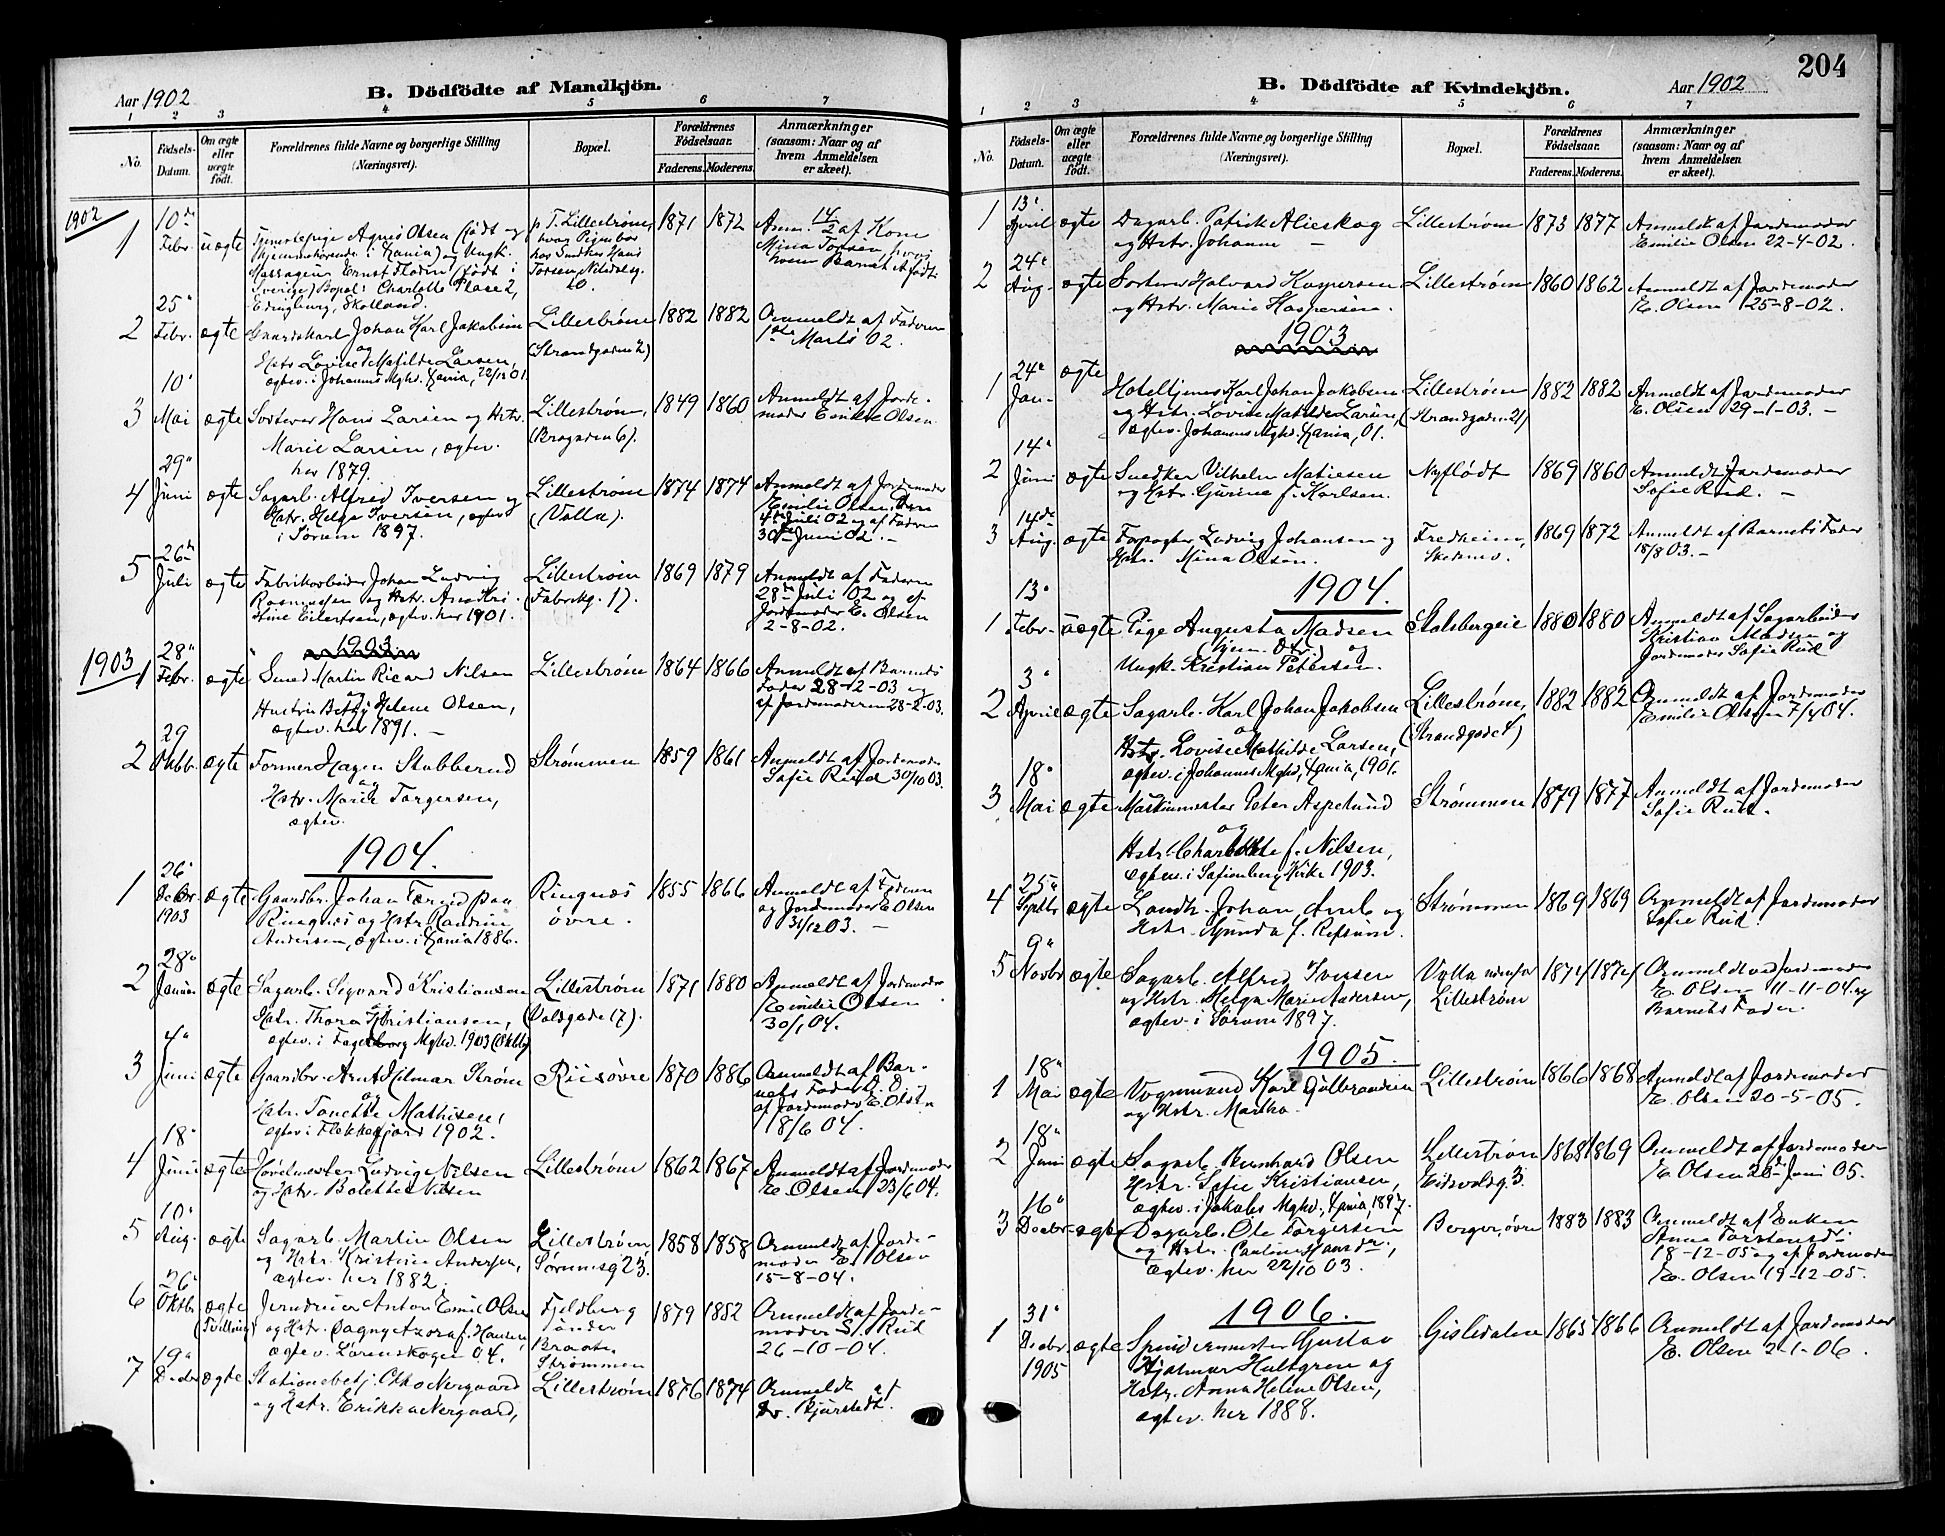 Aar 1902
B. Dödfödte af Mandkjön.
1 2 3 4 5 6 7
No.
Födsels-Datum.
Om ægte eller uægte födt.
Forældrenes fulde Navne og borgerlige Stilling
(Næringsvei).
Bopæl.
Forældrenes Födselsaar.
Faderens. Moderens.
Anmærkninger
(saasom: Naar og af
hvem Anmeldelsen
er skeet).
1902
1 10de Febr. uægte Tjenestepige Agnes Olsen (født og
hjemmehørende i Kania) og Ungk.
Massageur Ernst Flodin (født i
Sverige) Bopæl: Charlotte Place 2,
Edingburg, Skotland.
p. T. Lillestrøm,
hvor Pigen bor
hos Snedker Hans
Torsen, Nitedalsg.
10.
1871 1872
Anm. 14/2 af Kone
Mina Torsen, hvis
hvem Barnet er født
2 25" Febr. ægte Gaardskarl Johan Karl Jakobsen
og
Hstr. Lovise Matilde Larsen,
ægtev. i Johannes Mghd. Kania, 22/12 01.
Lillestrøm
(Strandgaden 2)
1882 1882
Anmeldt af Faderen
1ste Marts 02.
3 10" Mai ægte Sorterer Hans Larsen og Hstr.
Marie Larsen, ægtev.
her 1879.
Lillestrøm,
(Brogaden 6).
1849 1860
Anmeldt af Jorde-
moder Emilie Olsen
4 29" Juni ægte Sagarb. Alfred Iversen og
Hstr. Helga Iversen, ægtev
i Sørum 1897.
Lillestrøm
(Volla).
1874 1874
Anmeldt af Jordemoder
Emilie Olsen den
4de Juli 02 og af Faderen
30te Juni 02. –
5 26de Juli ægte Fabrikarbeider Johan Ludvig
Rasmussen og Hstr. Ana Kri-
stine Eilertsen, ægtev. her 1901.
Lillestrøm
(Fabrikg. 17).
1869 1879
Anmeldt af Faderen
28de Juli 02 og af
Jordemoder E. Olsen
2-8-02.
1903
1903
1 28" Febr. ægte Smed Martin Ricard Nilsen
og
Hustru Betsy Helene Olsen,
ægtev. her 1891. –
Lillestrøm
1864 1866
Anmeldt af Barnets
Fader 28-12-03 og
af Jordemoderen 28-2-03.
2 29 Oktbr. ægte Former Hagen Stubberud
og
Hstr. Marie Torgersen,
ægtev.
Strømmen
1859 1861
Anmeldt af Jordemoder
Sofie Ruud 30/10 03.
1904.
1 26" Decbr. 1903 ægte Gaardbr. Johan
Ringnes og Hstr. Randine
Andersen, ægtev. i Kania 1886.
Ringnes
øvre.
1855 1866
Anmeldt af Faderen
og Jordemoder E. Olsen
31/12 03. –
2 28" Januar ægte Sagarb. Sigvard Kristiansen
Hstr. Thora Kristiansen,
ægtev. i Fagerborg Mghd. 1903 (Oktbr)
Lillestrøm
(Voldgade 17).
1871 1880
Anmeldt af Jordemoder
Emilie Olsen
30/1 04.
3 4" Juni ægte Gaardbr. Arnt Hilmar Strøm
og
Hstr. Tonette Mathisen,
ægtev. i Flekkefjord 1902.
Riisøvre
1870 1886
Anmeldt af Bar-
nets Fader og
af Jordemoder E. Olsen
18/6 04.
4 18" Juni ægte Høvelmester Ludvig Nilsen
og Hstr. Bolette Nilsen
Lillestrøm
1862 1867
Anmeldt af Jordemoder
E. Olsen 23/6 04.
5 10" Aug. ægte Sagarb. Martin Olsen
og Hstr. Kristine Andersen,
ægtev. her 1882.
Lillestrøm,
Sørumsg 23.
1858 1858
Anmeldt af Jorde-
moder E. Olsen
15-8-04.
6 26" Oktbr. ægte (Tvilling) Jerndreier Anton Emil Olsen
og Hstr. Dagny Azora f. Hansen,
ægtev. Lørenskogen 04.
Fjeldberg
under
Braate,
Strømmen
1879 1882
Anmeldt af Jorde-
moder S. Rud
26-10-04.
7 19" Decbr ægte Stationsbetj. Otto Nergaard
og Hstr. Erikka Nergaard,
Lillestrøm
1876 1874
Anmeldt af
dr. Bjørstedt.
204
Aar 1902
B. Dödfödte af Kvindekjön.
1 2 3 4 5 6 7
No.
Födsels-Datum.
Om ægte eller uægte födt.
Forældrenes fulde Navne og borgerlige Stilling
(Næringsvei).
Bopæl.
Forældrenes Födselsaar.
Faderens. Moderens.
Anmærkninger
(saasom: Naar og af
hvem Anmeldelsen
er skeet).
1 13" April ægte Dagarb. Patrik Alieskog
og Hstr. Johanne –
Lillestrøm
1873 1877
Anmeldt af Jordemoder
Emilie Olsen 22-4-02.
2 24" Aug. ægte Sorterer Halvard Kaspersen
og Hstr. Marie Kaspersen.
Lillestrøm
1860 1862
Anmeldt af Jordemoder
E. Olsen 25-8-02.
1903
1 24" Jan. ægte Hoteltjener Karl Johan Jakobsen
og Hstr. Lovise Matilde Larsen,
ægtev. Johannes Mghd. Kania, 01.
Lillestrøm
(Strandgaden 21)
1882 1882
Anmeldt af Jordemoder
E. Olsen 29-1-03. –
2 14" Juni ægte Snedker Vilhelm Matiesen
og Hstr. Gurine f. Karlsen.
Nyflødt
1869 1860
Anmeldt Jordemoder
Sofie Rud. –
3 14de Aug. ægte Forpagter Ludvig Johansen og
Hstr. Mina Olsen.
Fredheim,
Skedsmo.
1869 1872
Anmeldt af Barnets Fader
18/8 03. –
1904.
1 13" Febr. uægte Pige Augusta Madsen
(hjem. Otr.) og
Ungk. Kristian Petersen.
Stalsbergeie
1880 1880
Anmeldt af Sagarbeider
Kristian Madsen og
Jordemoder Sofie Rud
2 3" April ægte Sagarb. Karl Johan Jakobsen
og
Hstr. Lovise Mathilde Larsen,
ægtev. i Johannes Mghd, Kania, 1901.
Lillestrøm,
(Strandgade 1)
1882 1882
Anmeldt af Jordemoder
Emilie Olsen 7/4 04.
3 18" Mai ægte Maskinmester Peter Aspelund
og
Hstr. Charlotte f. Nilsen,
ægtev. i Sofienberg Kirke 1903.
Strømmen
1879 1877
Anmeldt af Jordemoder
Sofie Rud.
4 25" Septbr ægte Landh. Johan og
Hstr. Gunda f. Refsum.
Strømmen
1869 1869
Anmeldt af Jordemoder
Sofie Rud.
5 9" Novbr ægte Sagarb. Alfred Iversen
og Hstr. Helga Marie Andersen,
ægtev. i Sørum 1897.
Volla udenfor
Lillestrøm
1874 1874
Anmeldt ved Jordemoder
E. Olsen 11-11-04. og
Barnets Fader.
1905.
1 18" Mai ægte Vognmand Karl Gulbrandsen
og Hstr. Martha.
Lillestrøm
1866 1868
Anmeldt af Jordemoder
E. Olsen 20-5-05.
2 18" Juni ægte Sagarb. Bernhard Olsen
Hstr. Sofie Kristiansen,
ægtev. i Jakobs Mghd, Kania, 1897.
Lillestrøm
Eidsvoldsg. 3.
1868 1869
Anmeldt af Jordemoder
E. Olsen 28de Juni 05.
3 16" Decbr. ægte Dagarb. Ole Torgersen
og Hstr. Pauline Hansdr.,
ægtev. her 22/10 03.
Berger, øvre
1883 1883
Anmeldt af Enken
Anne Torstensd.
18-12-05 og af Jordemoder
E. Olsen 19-12-05.
1906.
1 31" Decbr. 1905 ægte Spindemester Gustav
Hjalmar Hultgren og
Hstr. Anna Helene Olsen,
ægtev. her 1888.
Gisledalen
1865 1866
Anmeldt af Jordemoder
E. Olsen 2-1-06.